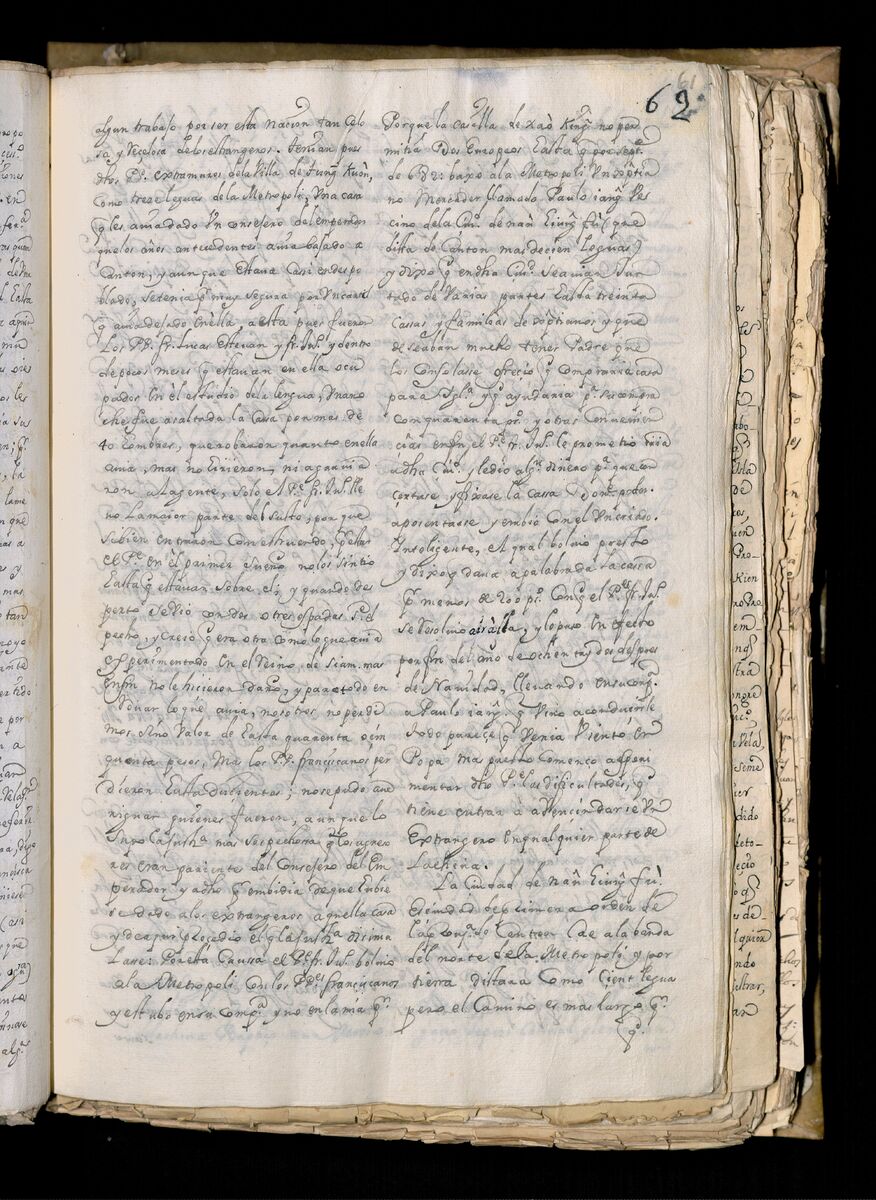 62
61
algun trabajo por ser esta nacion tan Celo
sa, y Recelosa de los estrangeros. tenian pues
dhos Ps. extramuros de la Villa de fung Kuon,
como trece leguas de la Metropoli, Vna casa
q les avia dado Vn consejero del emperador
que los años antecedentes avia bajado a
Canton, y aunque estava casi en despo
blado, se tenia pr muy segura por Vn cartel
q avia dejado en ella, a esta pues fueron
Los PPs. fr. Lucas Estevan y fr. Jul. y dentro
de pocos meses q estavan en ella ocu
pados en el estudio de la lengua, Vna no
che fue asaltada la Casa por mas de
40 hombres, que robaron quanto en ella
avia, mas no hirieron, ni agravia
ron a la gente, solo el Pe. fr. Jul. lle
vo la maior parte del susto, porque
si bien entraron con estruendo,
el Pe. en el primer sueño no los sintio
hasta q estavan sobre el, y quando des
perto se vio con dos o tres espadas al
pecho, y creio q era otra como lo que avia
esperimentado en el Reino de Sian. mas
en fin no le hicieron daño, y paro todo en
llevar lo que avia, nosotros no perdi
mos sino Valor de hasta quarenta o cin
quenta pesos, Mas los PPs. françiscanos per
dieron hasta ducientos; no se pudo ave
riguar quienes fueron, aunque lo
supo la justa. mas sospechosa q los agreso
res eran pariente del Consejero del Em
perador y a dho pr embidia de que hubie
se dado a los extrangeros aquella casa
y de aqui procedio el q la justa. disimu
lase: Por esta causa el Pe fr. Jul. bolvio
a la Metropoli con los PPes. françiscanos
y estubo en su compa. y no en la mia pr.
Porque la casilla de xao King no per
mitia dos Europeos hasta q por Sept.
de 682: baxo a la Metropoli Vn Xptia
no Mercader llamado Paulo iang Ve
cino de la Ciu. de nan hiung fù, que
dista de Canton mas de cien leguas,
y dixo q en dha Ciu. se avian Jun
tado de varias partes hasta treinta
casas y familias de Xptianos y que
deseaban mucho tener Padre que
les consolasse ofrecio q compraria casa
para Iglª. y q ayudaria pª. su compra
con quarenta ps. y otras conuenien
cias en fin el Pe. fr. Jul. le prometio iria
a dha Ciu. y le dio algn. dinero pª. que con
certase, y fixase la casa donde podr.
aposentarse y embio con el Vn criado
Inteligente, el qual bolvio presto
y dixo q dava apalabrada la casa
pr menos de 200 ps. Con q el Pe. fr. Jul.
se resolvio a ir alla, y lo puso en efecto
por fin del año de ochenta y dos despues
de Navidad, llevando en su compª.
a Paulo iang q vino a conducirle
todo pareçe q Venia Viento en
Popa mas presto Començo a esperi
mentar dho Pe. las dificultades, q
tiene entrar a avencindarse Vn
extrangero en qualquier parte de
La china.
La Ciudad de nan hiung fù,
es ciudad de primera orden de
cae a la banda
del norte de la Metropoli, y por
tierra distara como cient leguas
pero el Camino es mas largo q.
q.